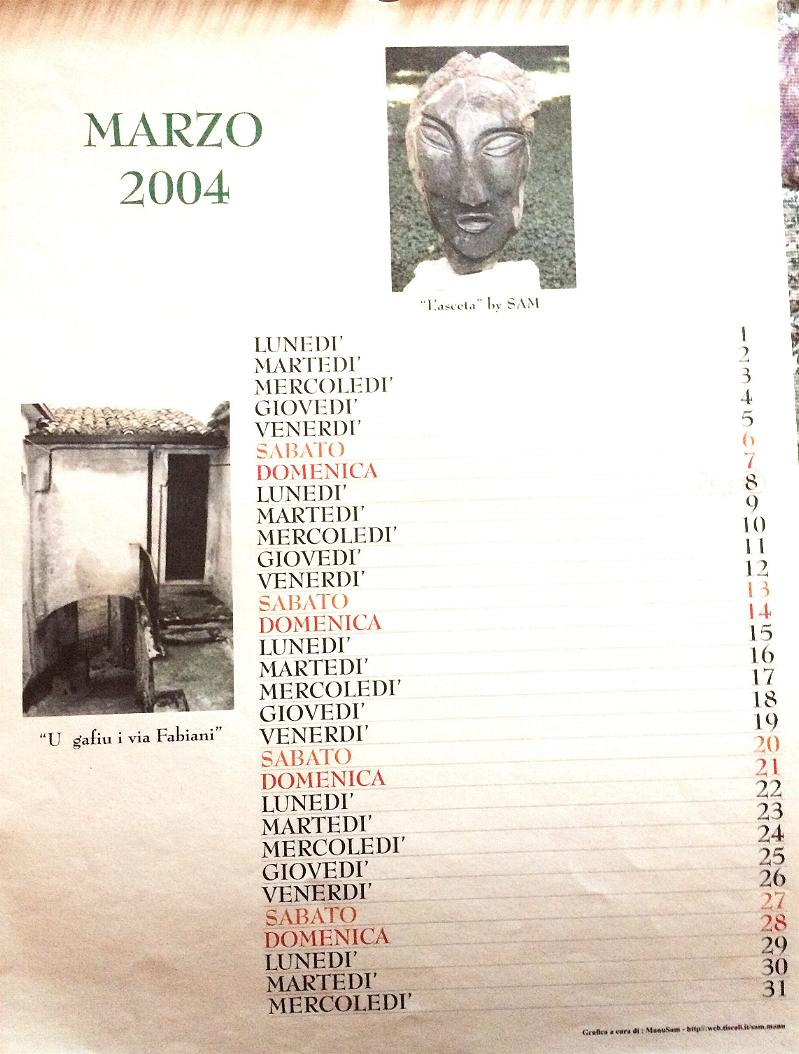 MARZO
2004
"L'asceta" by SAM
LUNEDI' 1
MARTEDI' 2
MERCOLEDI' 3
GIOVEDI' 4
VENERDI' 5
SABATO 6
DOMENICA 7
LUNEDI' 8
MARTEDI' 9
MERCOLEDI' 10
GIOVEDI' 11
VENERDI' 12
SABATO 13
DOMENICA 14
LUNEDI' 15
MARTEDI' 16
MERCOLEDI' 17
GIOVEDI' 18
VENERDI' 19
SABATO 20
DOMENICA 21
LUNEDI' 22
MARTEDI' 23
MERCOLEDI' 24
GIOVEDI' 25
VENERDI' 26
SABATO 27
DOMENICA 28
LUNEDI' 29
MARTEDI' 30
MERCOLEDI' 31
"U gafiu i via Fabiani"
Grafica a cura di : ManuSam - http://web.tiscali.it/sam.manu